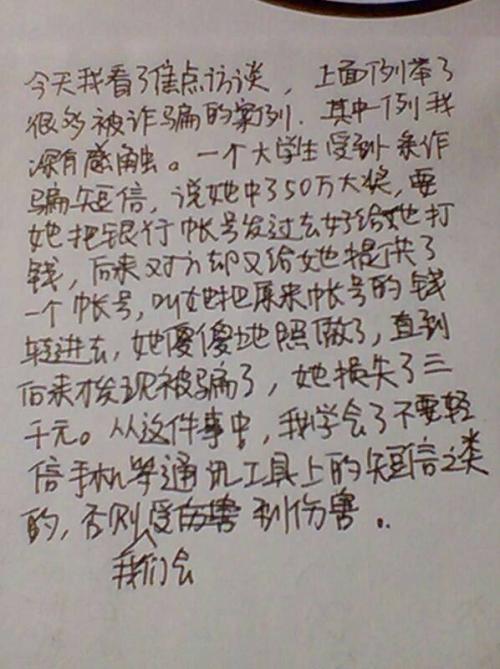 今天我看了焦点访谈，上面例举了
很多被诈骗的案例．其中一例我
深有感触。一个大学生受到一条诈
骗短信，说她中了50万大奖，要
她把银行帐号发过去好给她打
钱，后来对方却又给她提供了
一个帐号，叫她把原来帐号的钱
转进去，她傻傻地照做了，直到
后来才发现被骗了，她损失了三
千元。从这件事中，我学会了不要轻
信手机等通讯工具上的短信之类
的，否则受伤害到伤害．
我们会